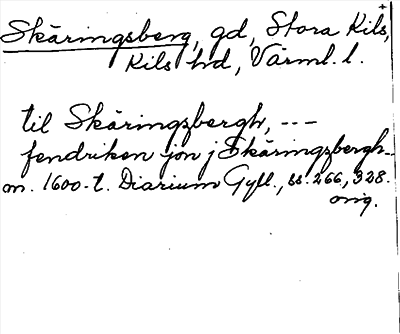 Skäringsberg, gd, Stora Kils,
Kils hd, Värml. l.
til Skäringzbergh, ---
fendriken jon j Skäringzbergh_
m. 1600-t. Diarium Gyll., ss. 266, 328.
orig.